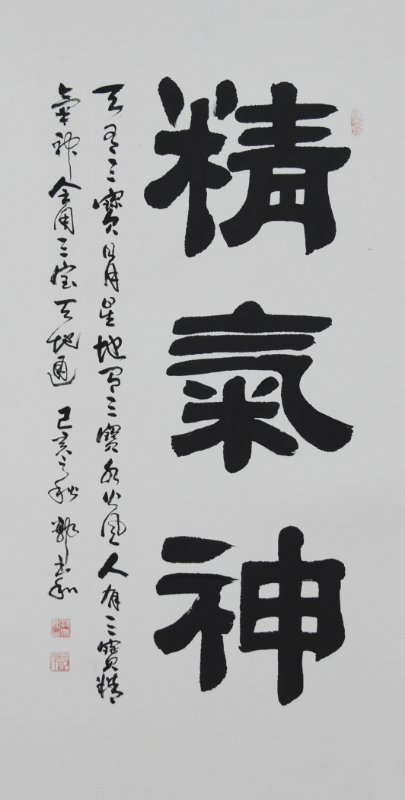 精氣神
天有三寶日月星地有三寶水火風人有三寶精
氣神会用三宝天地通 己亥之秋